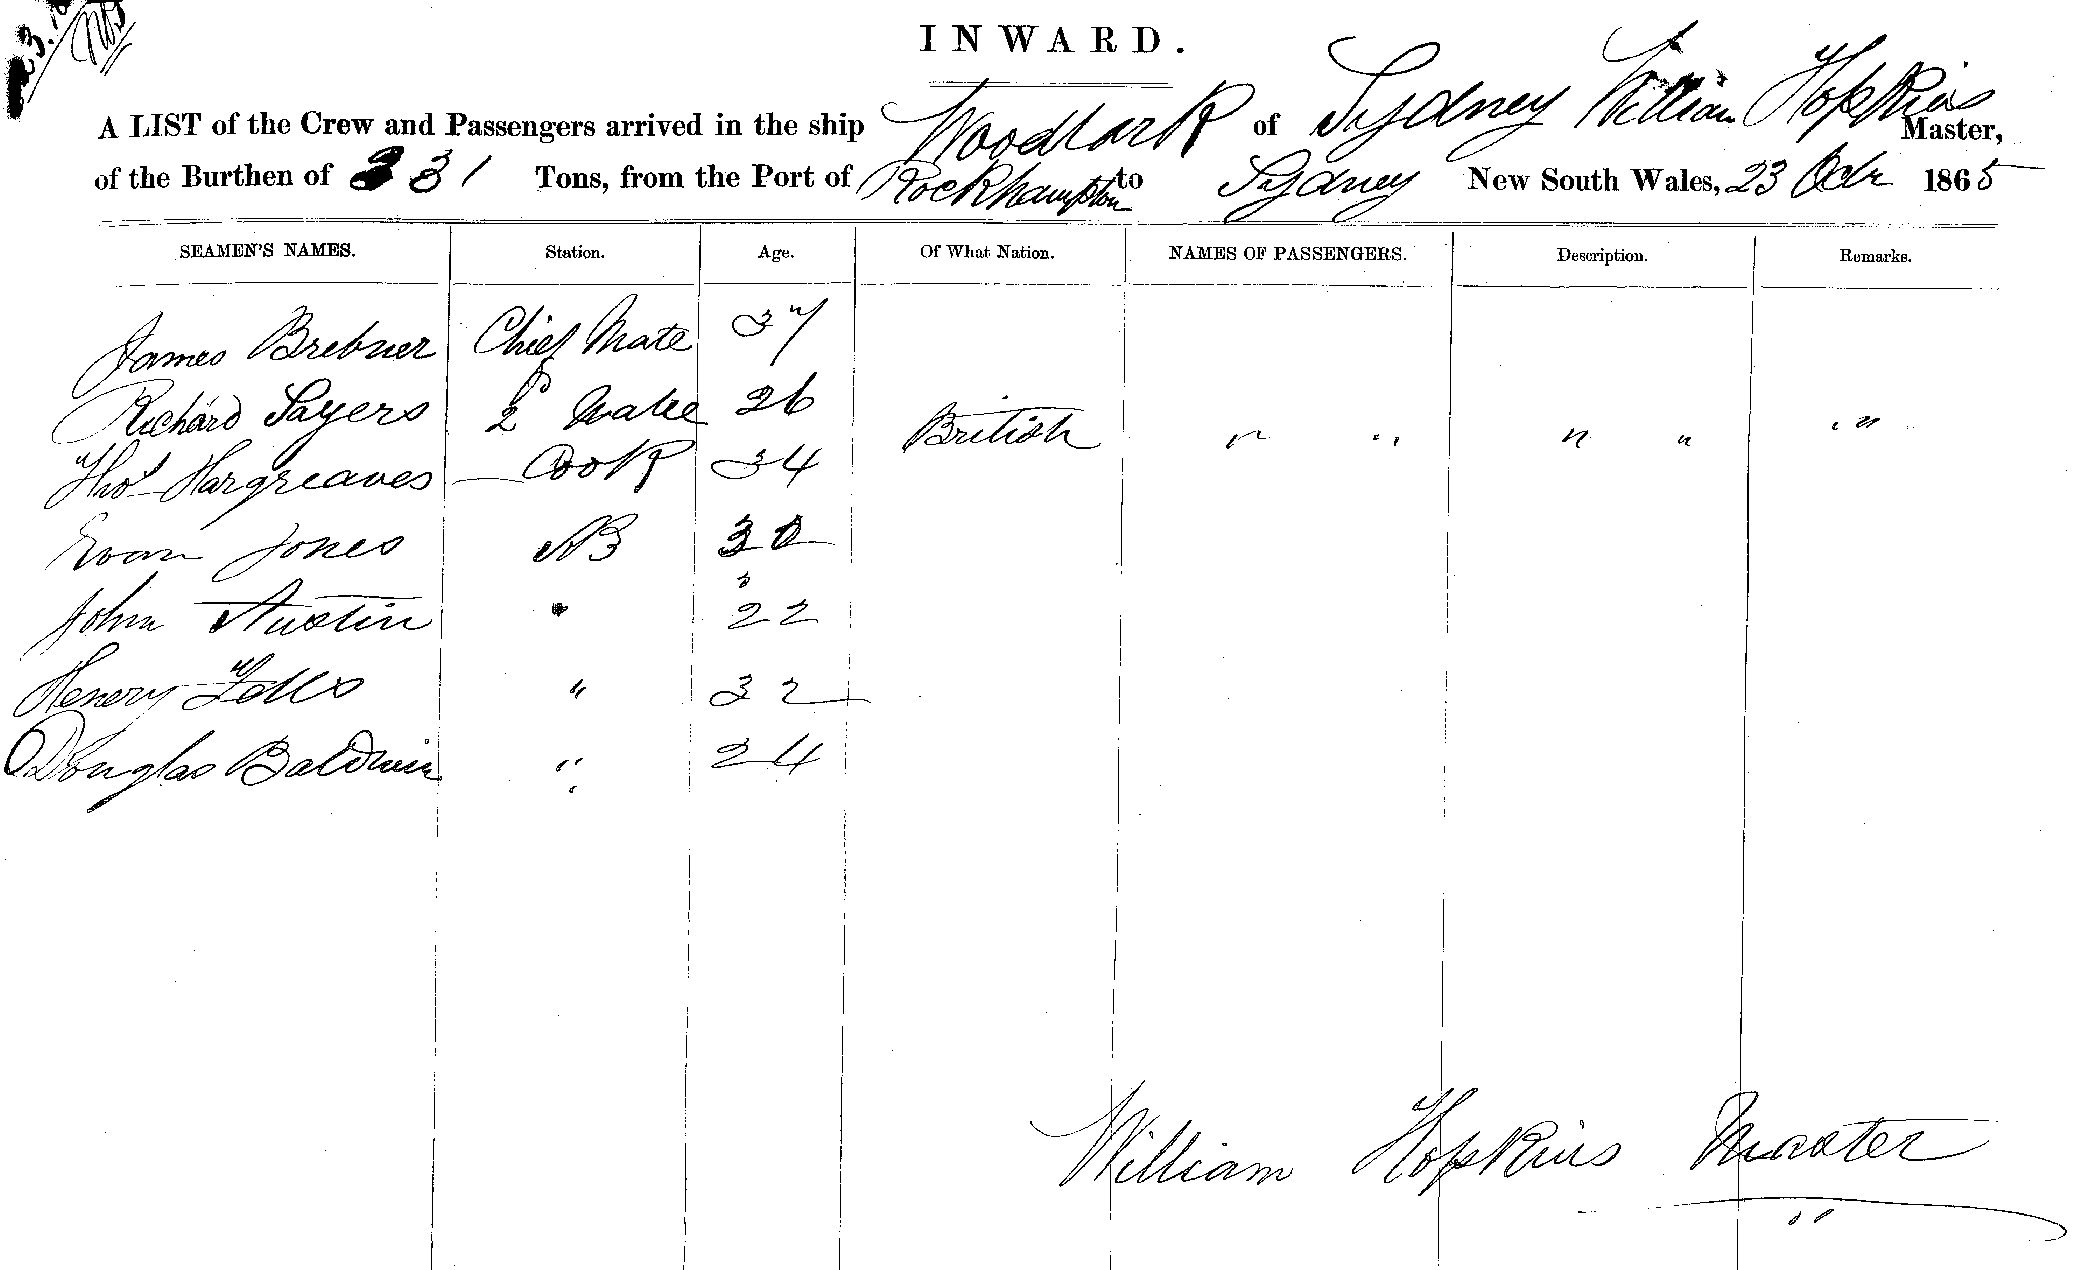 INWARD.
A LIST of the Crew and Passengers arrived in the ship Woodlark of Sydney William Hopkins Master,
of the Burthen of 331 Tons, from the Port of Rockhampton to Sydney New South Wales, 23 Octr 1865
SEAMEN'S NAMES. Station. Age. Of What Nation. NAMES OF PASSENGERS. Description. Remarks.
James Brebner Chief Mate 37
Richard Sayers 2d Mate 26 British " " " " "
Thos Hargreaves Cook 34
Evan Jones AB 30
John Austin " 22
Henery " 32
Douglas Baldwin " 24
William Hopkins Master